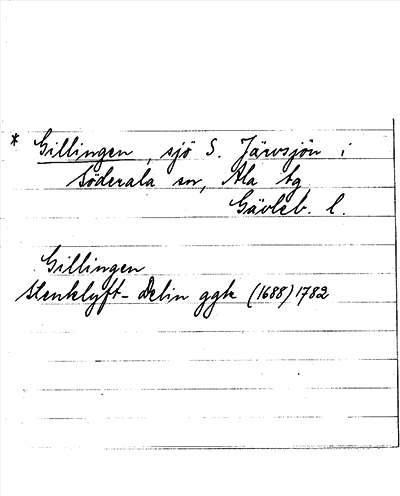 * Gillingen, sjö S. Järvsjön i
Söderala sn, Ala tg
Gävleb. l.
Gillingen
Stenklyft- Delin ggk (1688) 1782